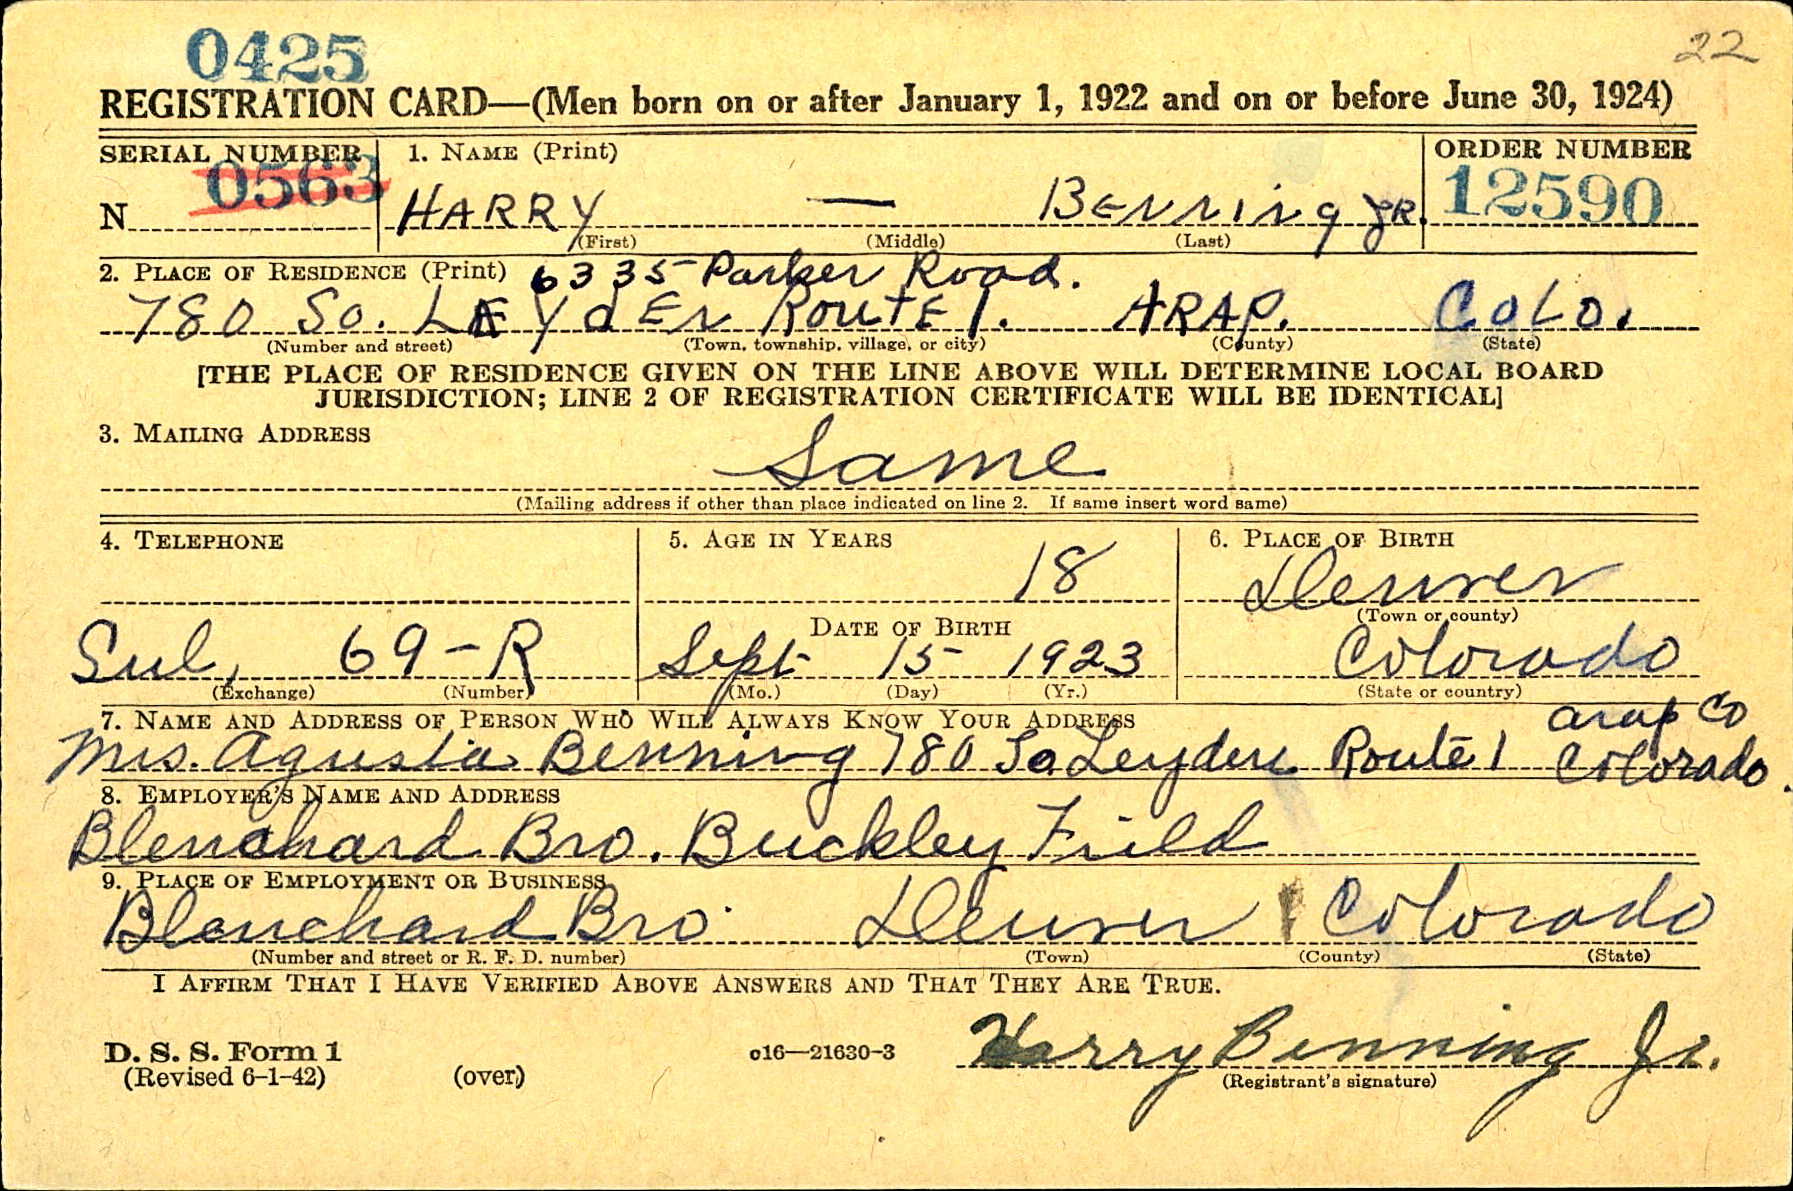 22
0425
REGISTRATION CARD—(Men born on or after January 1, 1922 and on or before June 30, 1924)
SERIAL NUMBER 1. NAME (Print) ORDER NUMBER
N 0563 HARRY — BENNING JR. 12590
(First) (Middle) (Last)
2. PLACE OF RESIDENCE (Print) 6335 Parker Road.
780 So. LEYdEN ROUTE 1. ARAP. COLO.
(Number and street) (Town, township, village, or city) (County) (State)
[THE PLACE OF RESIDENCE GIVEN ON THE LINE ABOVE WILL DETERMINE LOCAL BOARD
JURISDICTION; LINE 2 OF REGISTRATION CERTIFICATE WILL BE IDENTICAL]
3. MAILING ADDRESS
Same
(Mailing address if other than place indicated on line 2. If same insert word same)
4. TELEPHONE 5. AGE IN YEARS 6. PLACE OF BIRTH
18 Denver
(Town or county)
DATE OF BIRTH
Sul, 69-R Sept 15 1923 Colorado
(Exchange) (Number) (Mo.) (Day) (Yr.) (State or country)
7. NAME AND ADDRESS OF PERSON WHO WILL ALWAYS KNOW YOUR ADDRESS arap Co
Mrs. Agusta Benning 780 So Leyden Route 1 Colorado.
8. EMPLOYER'S NAME AND ADDRESS
Blenchard Bro. Buckley Field
9. PLACE OF EMPLOYMENT OR BUSINESS
Blanchard Bro. Denver Colorado
(Number and street or R. F. D. number) (Town) (County) (State)
I AFFIRM THAT I HAVE VERIFIED ABOVE ANSWERS AND THAT THEY ARE TRUE.
D. S. S. Form 1
(Revised 6-1-42) (over) c16—21630-3 Harry Benning Jr.
(Registrant's signature)